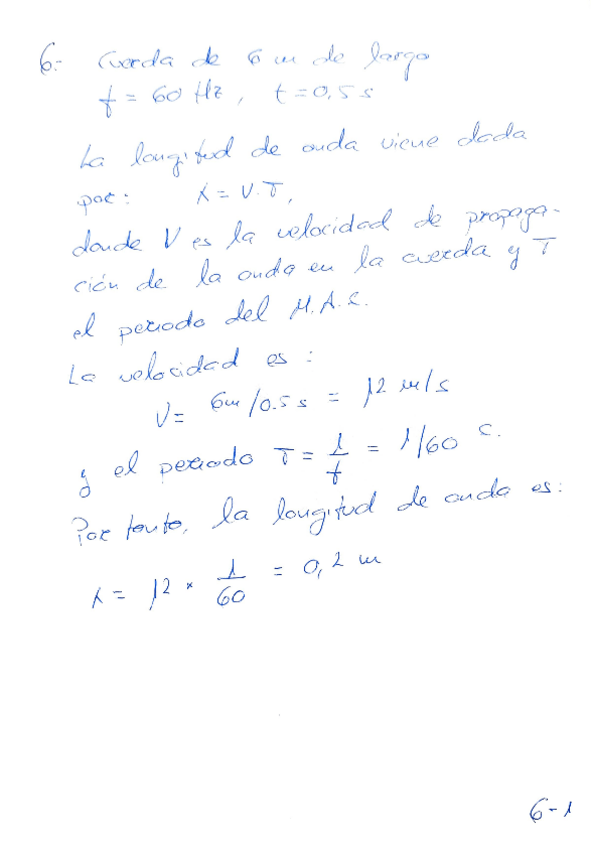 6.- Cuerda de 6 m de largo
f = 60 Hz, t = 0,5 s
La longitud de onda viene dada
por: λ = V.T,
donde V es la velocidad de propaga-
ción de la onda en la cuerda y T
el periodo del M.A.S.
La velocidad es:
V = 6m/0.5 s = 12 m/s
y el periodo T = 1/f = 1/60 s.
Por tanto, la longitud de onda es:
λ = 12 * 1/60 = 0,2 m
6-1